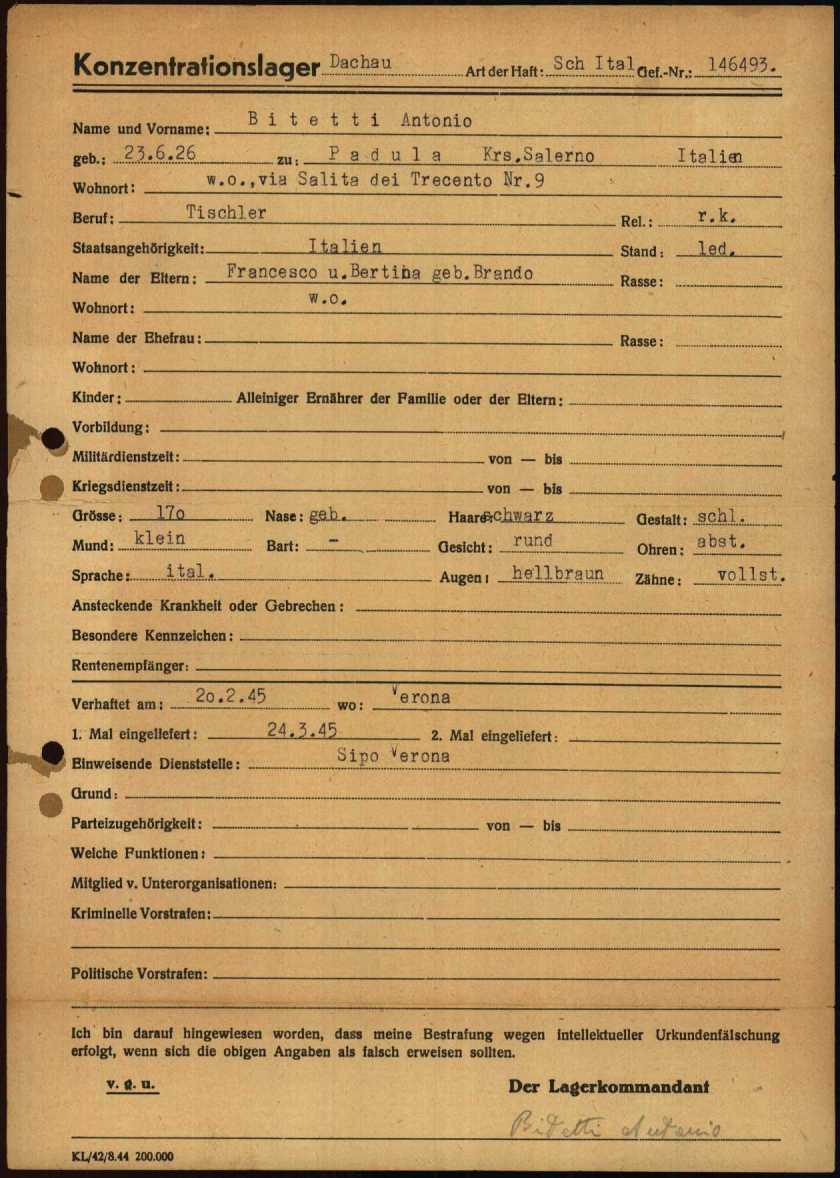 Konzentrationslager Dachau Art der Haft: Sch Ital Gef.-Nr.: 146493.
Name und Vorname: B i t e t t i Antonio
geb.: 23.6.26 zu: P a d u l a Krs.Salerno Italien
Wohnort: w.o.,via Salita dei Trecento Nr.9
Beruf: Tischler Rel.: r.k.
Staatsangehörigkeit: Italien Stand: led.
Name der Eltern: Francesco u.Bertina geb.Brando Rasse:
Wohnort: w.o.
Name der Ehefrau: Rasse:
Wohnort:
Kinder: Alleiniger Ernährer der Familie oder der Eltern:
Vorbildung:
Militärdienstzeit: von — bis
Kriegsdienstzeit: von — bis
Grösse: 17o Nase: geb. Haare: schwarz Gestalt: schl.
Mund: klein Bart: - Gesicht: rund Ohren: abst.
Sprache: ital. Augen: hellbraun Zähne: vollst.
Ansteckende Krankheit oder Gebrechen:
Besondere Kennzeichen:
Rentenempfänger:
Verhaftet am: 2o.2.45 wo: Verona
1. Mal eingeliefert: 24.3.45 2. Mal eingeliefert:
Einweisende Dienststelle: Sipo Verona
Grund:
Parteizugehörigkeit: von — bis
Welche Funktionen:
Mitglied v. Unterorganisationen:
Kriminelle Vorstrafen:
Politische Vorstrafen:
Ich bin darauf hingewiesen worden, dass meine Bestrafung wegen intellektueller Urkundenfälschung
erfolgt, wenn sich die obigen Angaben als falsch erweisen sollten.
v. g. u. Der Lagerkommandant
Bitetti Antonio
KL/42/8.44 200.000